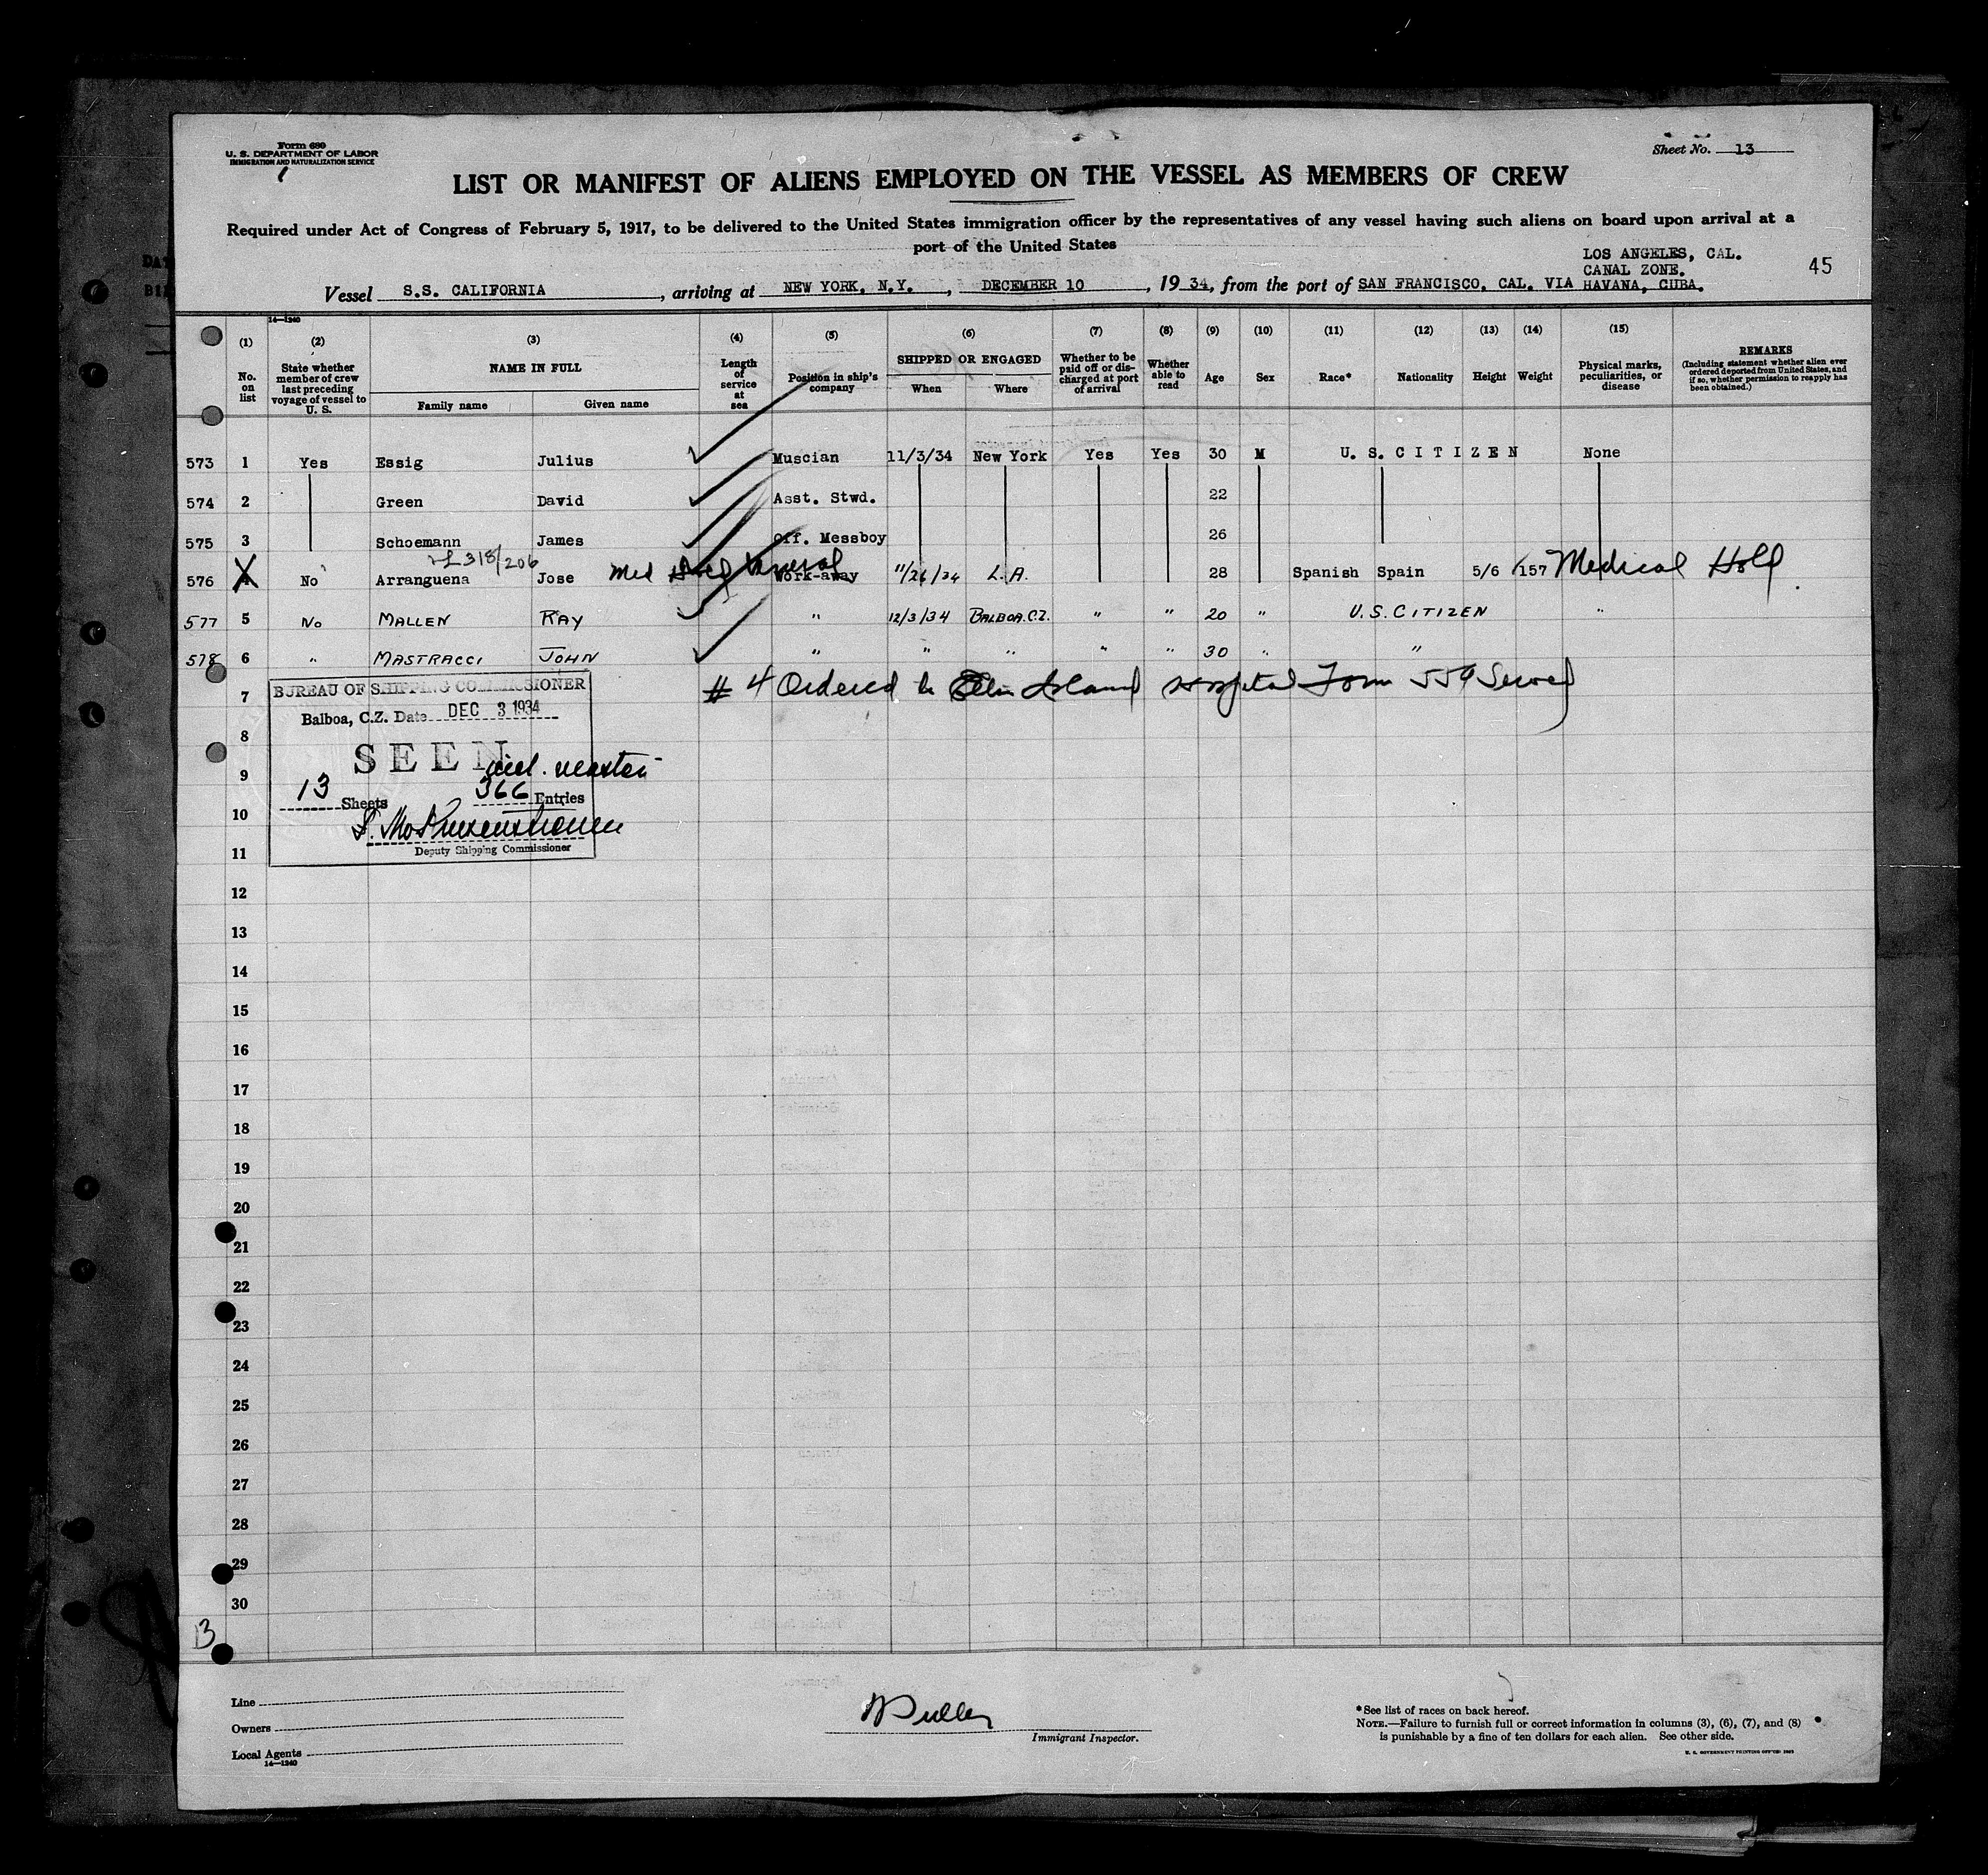 Form 680
U. S. DEPARTMENT OF LABOR
IMMIGRATION AND NATURALIZATION SERVICE
Sheet No. 13
LIST OR MANIFEST OF ALIENS EMPLOYED ON THE VESSEL AS MEMBERS OF CREW
Required under Act of Congress of February 5, 1917, to be delivered to the United States immigration officer by the representatives of any vessel having such aliens on board upon arrival at a
port of the United States
LOS ANGELES, CAL.
CANAL ZONE.
45
Vessel S.S. CALIFORNIA, arriving at NEW YORK, N.Y., DECEMBER 10, 1934, from the port of SAN FRANCISCO, CAL. VIA HAVANA, CUBA.
14—1240
(1) No. on list
(2) State whether member of crew last preceding voyage of vessel to U. S.
(3) NAME IN FULL
Family name Given name
(4) Length of service at sea
(5) Position in ship's company
(6) SHIPPED OR ENGAGED
When Where
(7) Whether to be paid off or discharged at port of arrival
(8) Whether able to read
(9) Age
(10) Sex
(11) Race*
(12) Nationality
(13) Height
(14) Weight
(15) Physical marks, peculiarities, or disease
REMARKS
(Including statement whether alien ever ordered deported from United States, and if so, whether permission to reapply has been obtained.)
573 1 Yes Essig Julius Muscian 11/3/34 New York Yes Yes 30 M U. S. C I T I Z E N None
574 2 Green David Asst. Stwd. 22
575 3 Schoemann James Off. Messboy 26
318/206
576 4 No Arranguena Jose Med Hold Work-away 11/26/34 L.A. 28 Spanish Spain 5/6 157 Medical Hold
577 5 No MALLEN RAY " 12/3/34 BALBOA. C.Z. " " 20 " U.S. CITIZEN "
578 6 " MASTRACCI JOHN " " " " " 30 " "
# 4 Ordered to Ellis Island Hospital Form 559 Served
BUREAU OF SHIPPING COMMISSIONER
Balboa, C.Z. Date DEC 3 1934
SEEN
incl. master
13 Sheets 366 Entries
Deputy Shipping Commissioner
7
8
9
10
11
12
13
14
15
16
17
18
19
20
21
22
23
24
25
26
27
28
29
30
13
Line
Owners
Local Agents
14—1240
Immigrant Inspector.
*See list of races on back hereof.
NOTE.—Failure to furnish full or correct information in columns (3), (6), (7), and (8)
is punishable by a fine of ten dollars for each alien. See other side.
U. S. GOVERNMENT PRINTING OFFICE: